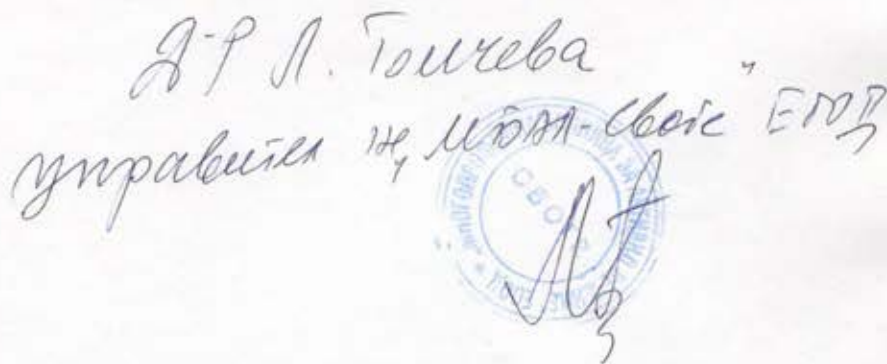 Д-р Л. Томчева
управител на „МБАЛ-Своге" ЕООД
СВОГЕ